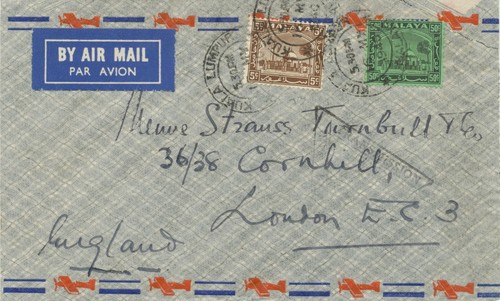 BY AIR MAIL
PAR AVION
KUALA LUMPUR
5c
5c
MALAYA
50c
50c
Strauss Turnbull & Co
36/38 Cornhill,
London E.C.3
England